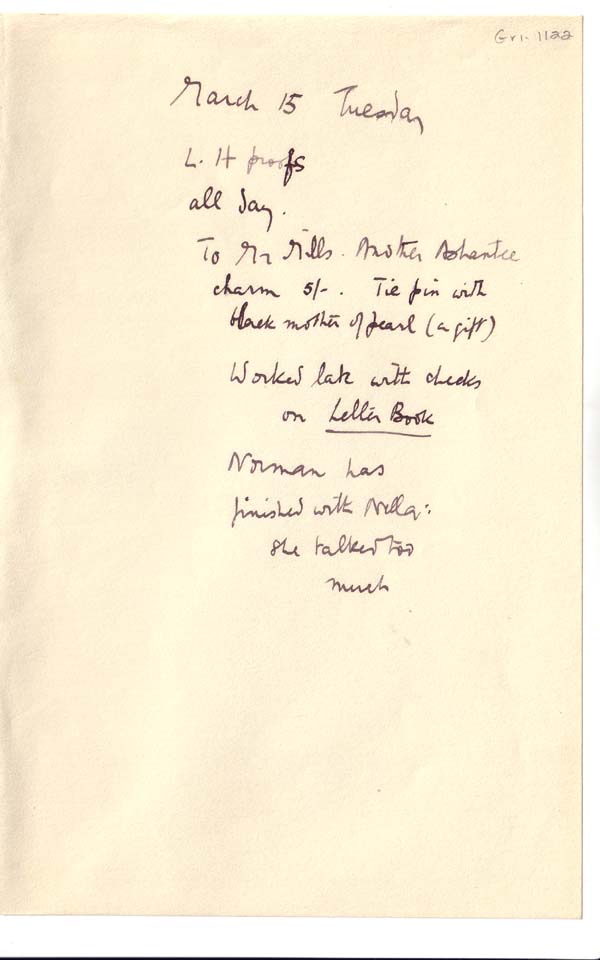 Gri. 1122
March 15 Tuesday
L. H proofs
all day.
To Mr Mills. Another Ashantee
charm 5/-. Tie pin with
black mother of pearl (a gift)
Worked late with checks
on Letter Book
Norman has
finished with Nella:
she talked too
much